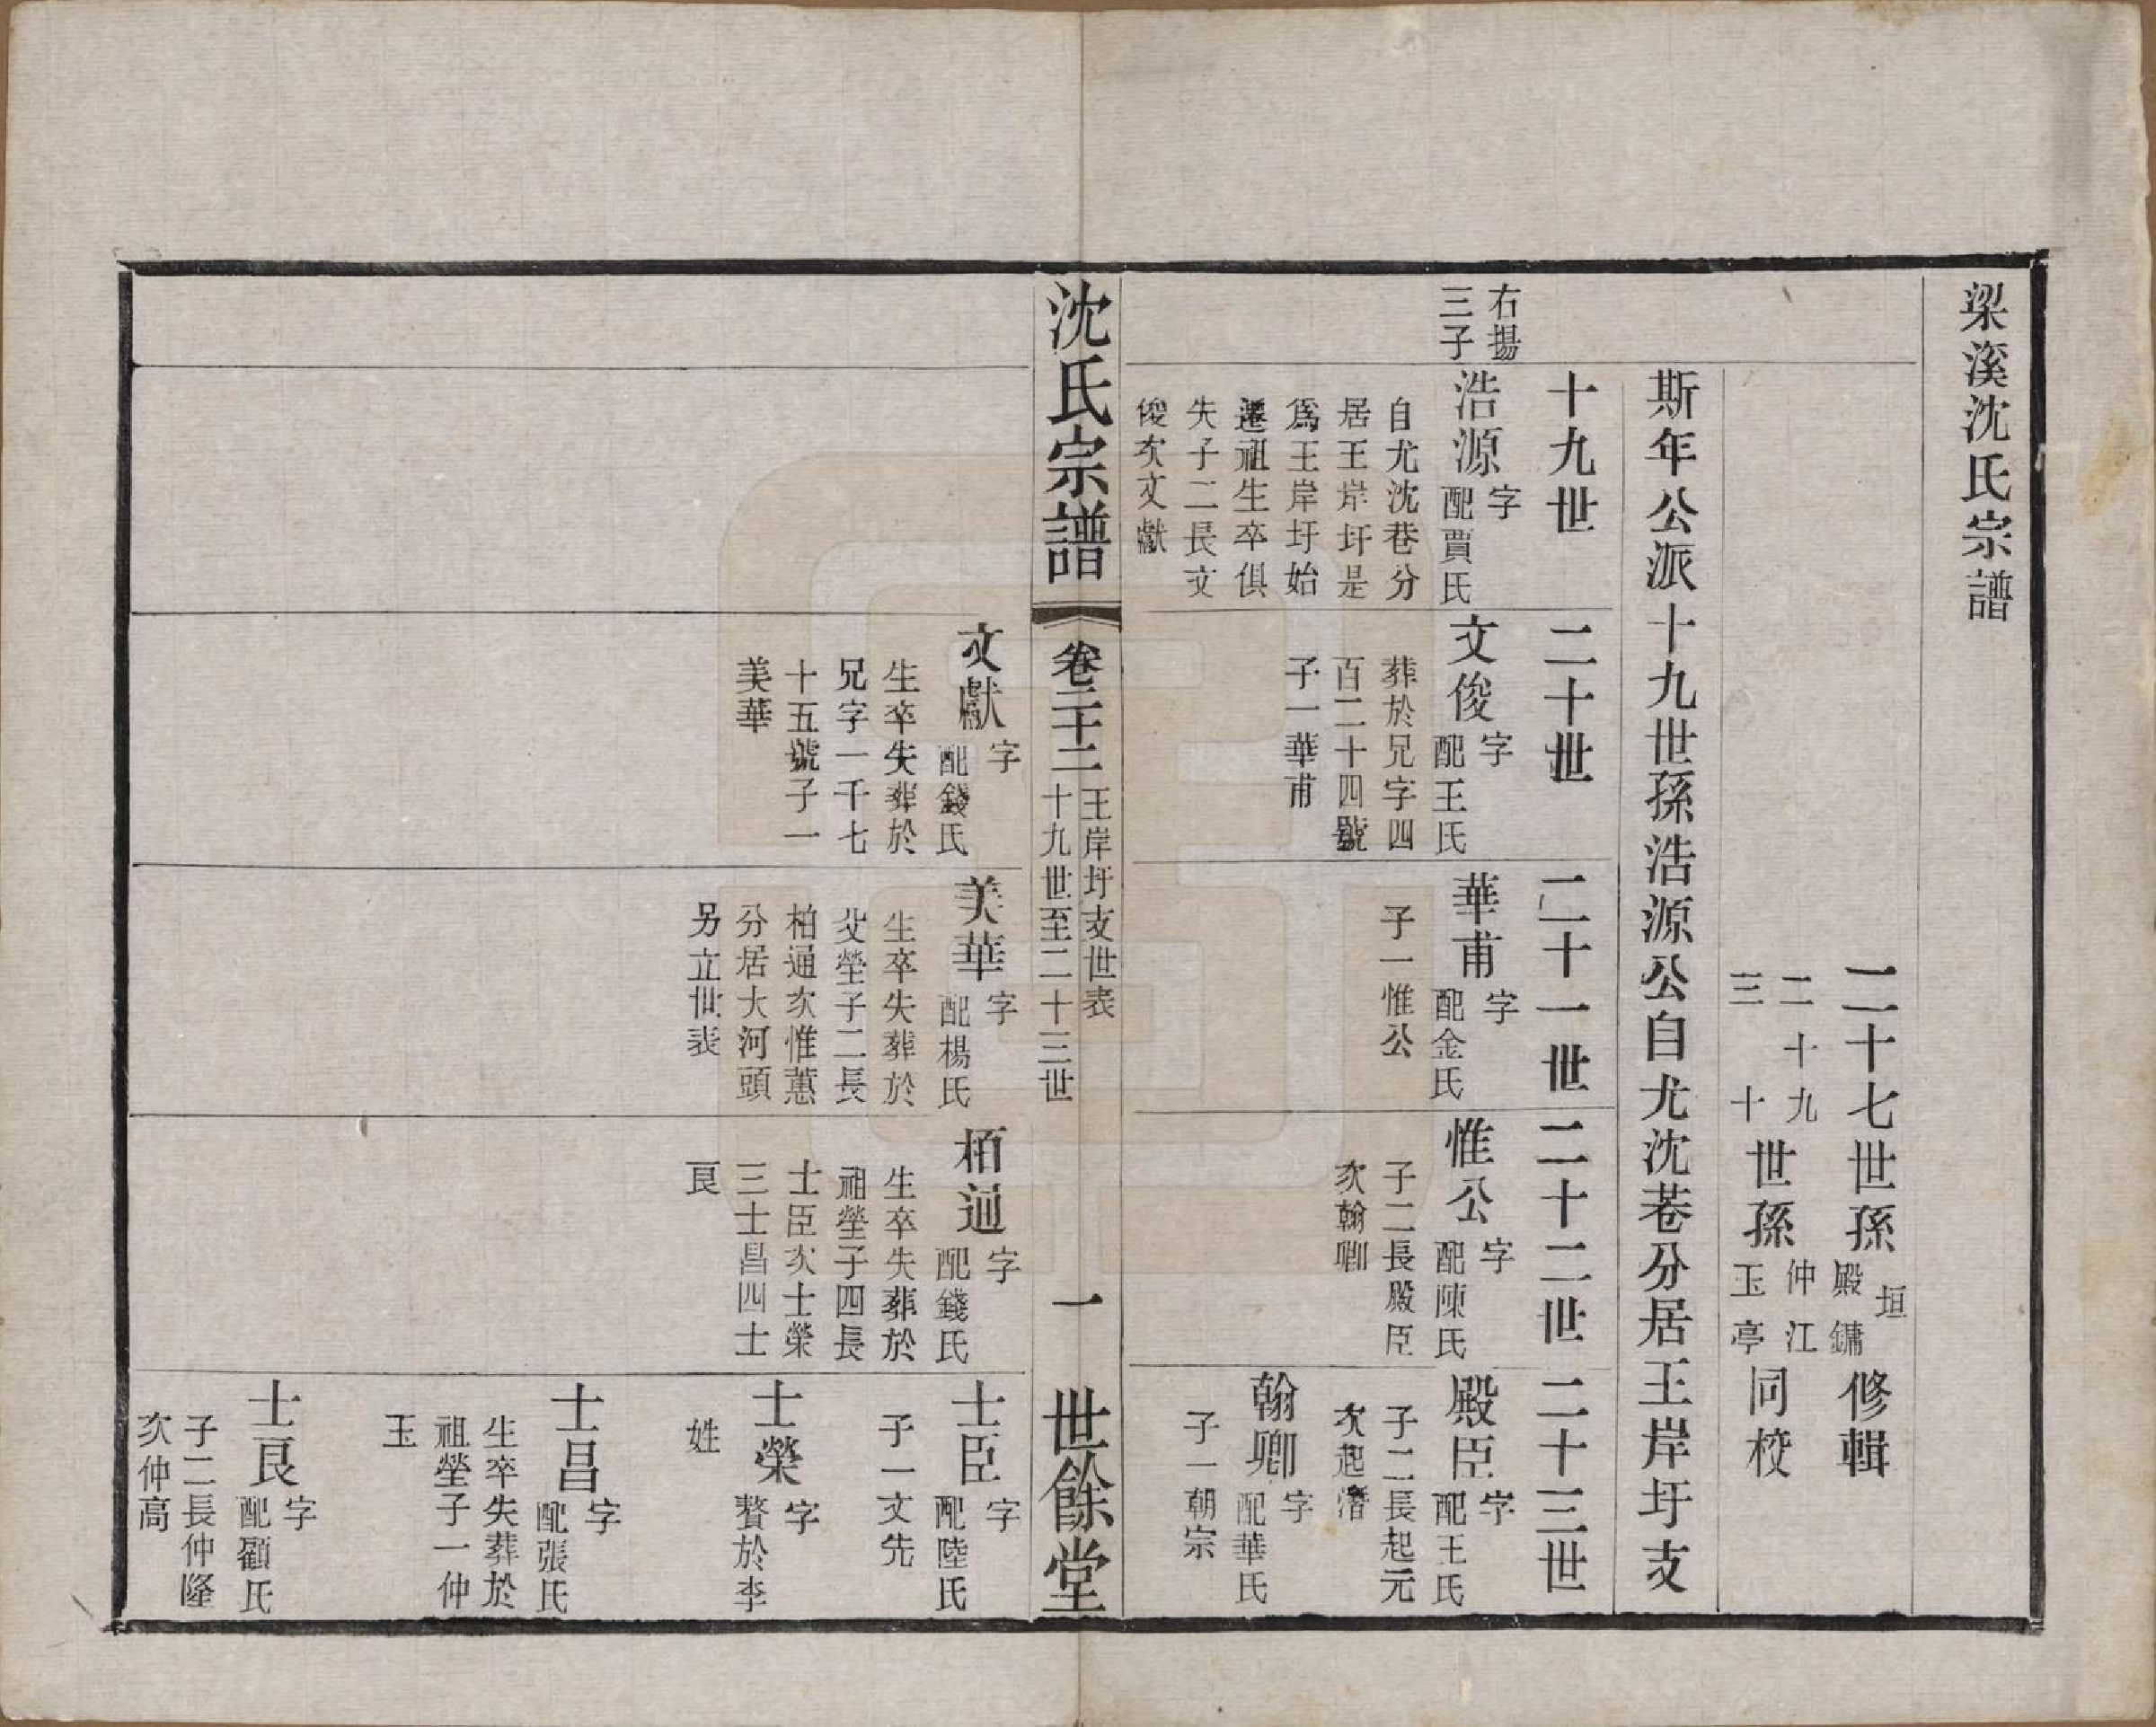 梁溪沈氏宗譜
二十七世孫垣殿鏞修輯
二十九世孫仲江
三十世孫玉亭同校
斯年公派十九世孫浩源公自尤沈巷分居王岸圩支
十九世
二十世
二十一世
二十二世
二十三世
右揚
三子
浩源字
配賈氏
自尤沈巷分
居王岸圩是
爲王岸圩始
遷祖生卒俱
失子二長文
俊次文獻
文俊字
配王氏
葬於兄字四
百二十四號
子一華甫
華甫字
配金氏
子一惟公
惟公字
配陳氏
子二長殿臣
次翰卿
殿臣字
配王氏
子二長起元
次起潛
翰卿字
配華氏
子一朝宗
沈氏宗譜
卷三十二
王岸圩支世表
十九世至二十三世
一
世餘堂
文獻字
配錢氏
生卒失葬於
兄字一千七
十五號子一
美華
美華字
配楊氏
生卒失葬於
父塋子二長
柏通次惟蕙
分居大河頭
另立世表
栢通字
配錢氏
生卒失葬於
祖塋子四長
士臣次士榮
三士昌四士
良
士臣字
配陸氏
子一文先
士榮字
贅於李
姓
士昌字
配張氏
生卒失葬於
祖塋子一仲
玉
士良字
配顧氏
子二長仲隆
次仲高